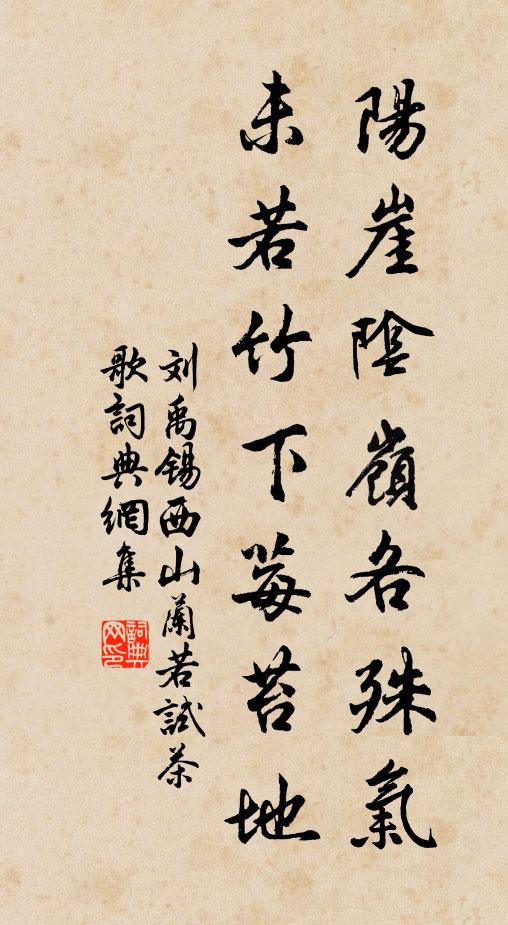 陽崖陰嶺各殊氣
未若竹下莓苔地
刘禹锡西山蘭若試茶
歌詞典網集
詞典網印